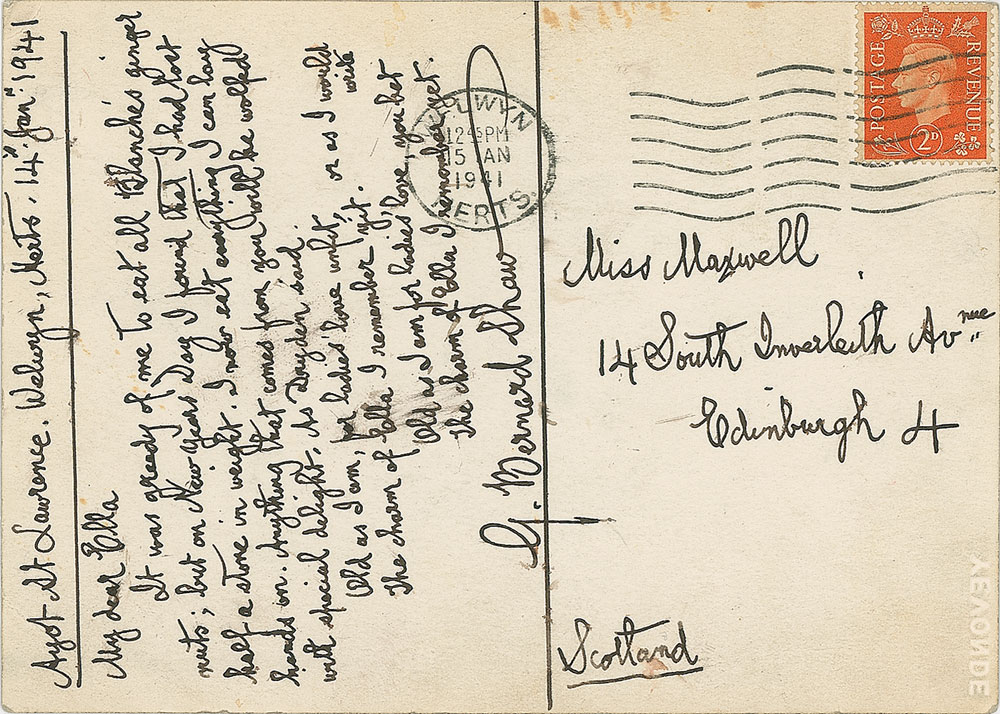 Ayot St Lawrence. Welwyn, Herts. 14th Jan: 1941
My dear Ella
It was greedy of me to eat all Blanche's ginger
nuts; but on New Years Day I found that I had lost
half a stone in weight. I now eat everything I can lay
hands on. Anything that comes from you will be wolfed
with special delight. As Dryden said
Old as I am, for ladies' love unfit,
The charm of Ella I remember yet.
or as I would
write
Old as I am for ladies love, you bet
The charm of Ella I remember yet.
G. Bernard Shaw
WELWYN
12 45 PM
15 JAN
1941
HERTS.
POSTAGE
REVENUE
2D
Miss Maxwell
14 South Inverleith Avnue
Edinburgh 4
Scotland
YEVONDE